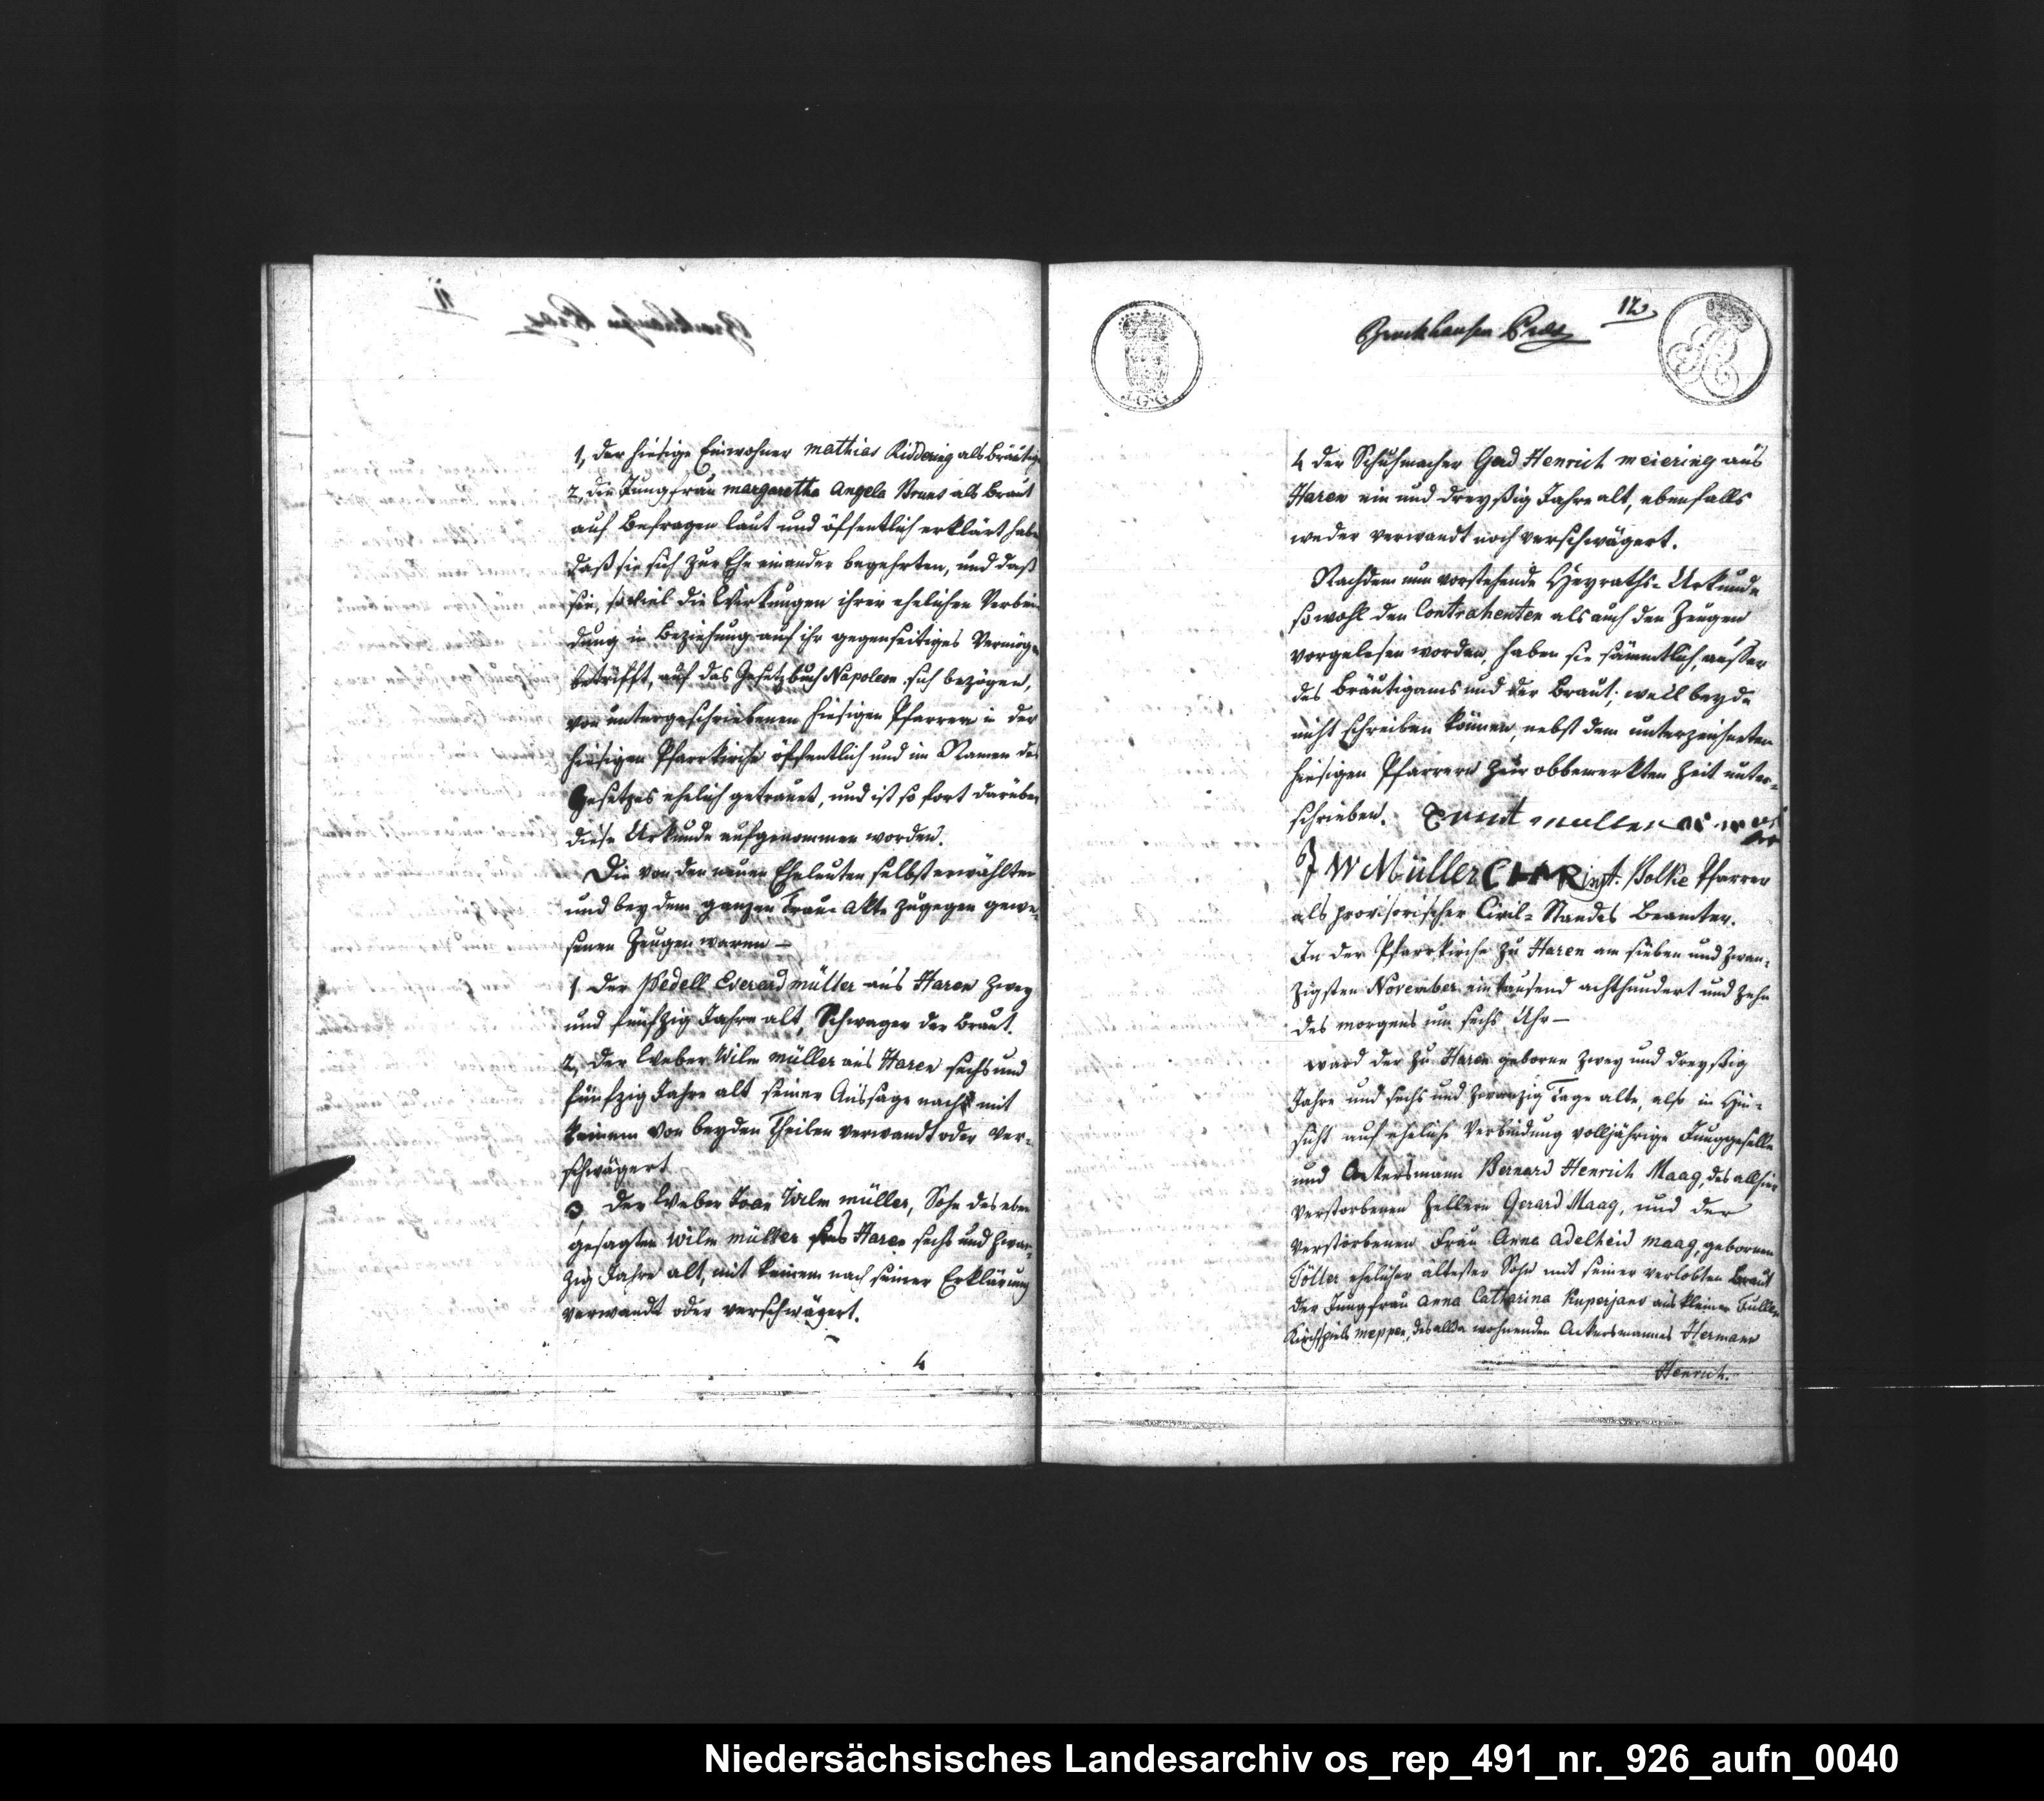 1, der hiesige Einwohner Mathias Riddering als Bräutig
2, die Jungfrau Margaretha Angela Bruns als Braut
auf Befragen laut und öffentlich erklärt habe
daß sie sich zur Ehe einander begehrten, und daß
sie, soviel die Wirkungen ihrer ehelichen Verbin
dung in Beziehung auf ihr gegenseitiges Vermöge
betrifft, auf das Gesetzbuch Napoleon sich bezögen,
von untergeschriebenen hiesigen Pfarrern in der
hiesigen Pfarrkirche öffentlich und im Namen des
Gesetzes ehelich getrauet, und ist so fort darüber
diese Urkunde aufgenommen worden.
Die von den neuen Eheleuten selbst erwählten
und bey dem ganzen Trau-Akte zugegen gewe-
senen Zeugen waren —
1 der Pedell Everard Müller aus Haren zwey
und fünfzig Jahre alt, Schwager der Braut.
2, der Weber Wilm Müller aus Haren sechs und
fünfzig Jahre alt seiner Aussage nach mit
keinem von beyden Theilen verwandt oder ver-
schwägert
3 der Weber Joan Wilm Müller, Sohn des eben
gesagten Wilm Müller aus Haren sechs und zwan-
zig Jahre alt, mit keinem nach seiner Erklärung
verwandt oder verschwägert.
4
12
Bruckhausen
J.G.G
4 der Schuhmacher Gerd Henrich Meiering aus
Haren ein und dreyßig Jahre alt, ebenfalls
weder verwandt noch verschwägert.
Nachdem nun vorstehende Heyraths-Urkunde
sowohl den Contrahenten als auch den Zeugen
vorgelesen worden, haben sie sämmtlich, ausser
des Bräutigams und der Braut, weil beyde
nicht schreiben können, nebst dem unterzeichneten
hiesigen Pfarrern zur obbemerkten Zeit unter-
schrieben. Müller
J W Müller Polke Pfarrer
als provisorischer Civil-Standes Beamter.
In der Pfarrkirche zu Haren am sieben und zwan-
zigsten November eintausend achthundert und zehn
des morgens um sechs Uhr —
ward der zu Haren geborne zwey und dreyßig
Jahre und sechs und zwanzig Tage alte, also in Hin-
sicht auf eheliche Verbindung volljährige Junggeselle
und Ackersmann Bernard Henrich Maag, des allhier
verstorbenen Zellern Gerard Maag, und der
verstorbenen Frau Anna Adelheid Maag, gebornen
Tölter ehelicher ältester Sohn mit seiner verlobten Braut
der Jungfrau Anna Catharina Kuperjans aus kleinen Füllen
Kirchspiels Meppen, des allda wohnenden Ackersmannes Hermann
Henrich.
Niedersächsisches Landesarchiv os_rep_491_nr._926_aufn_0040